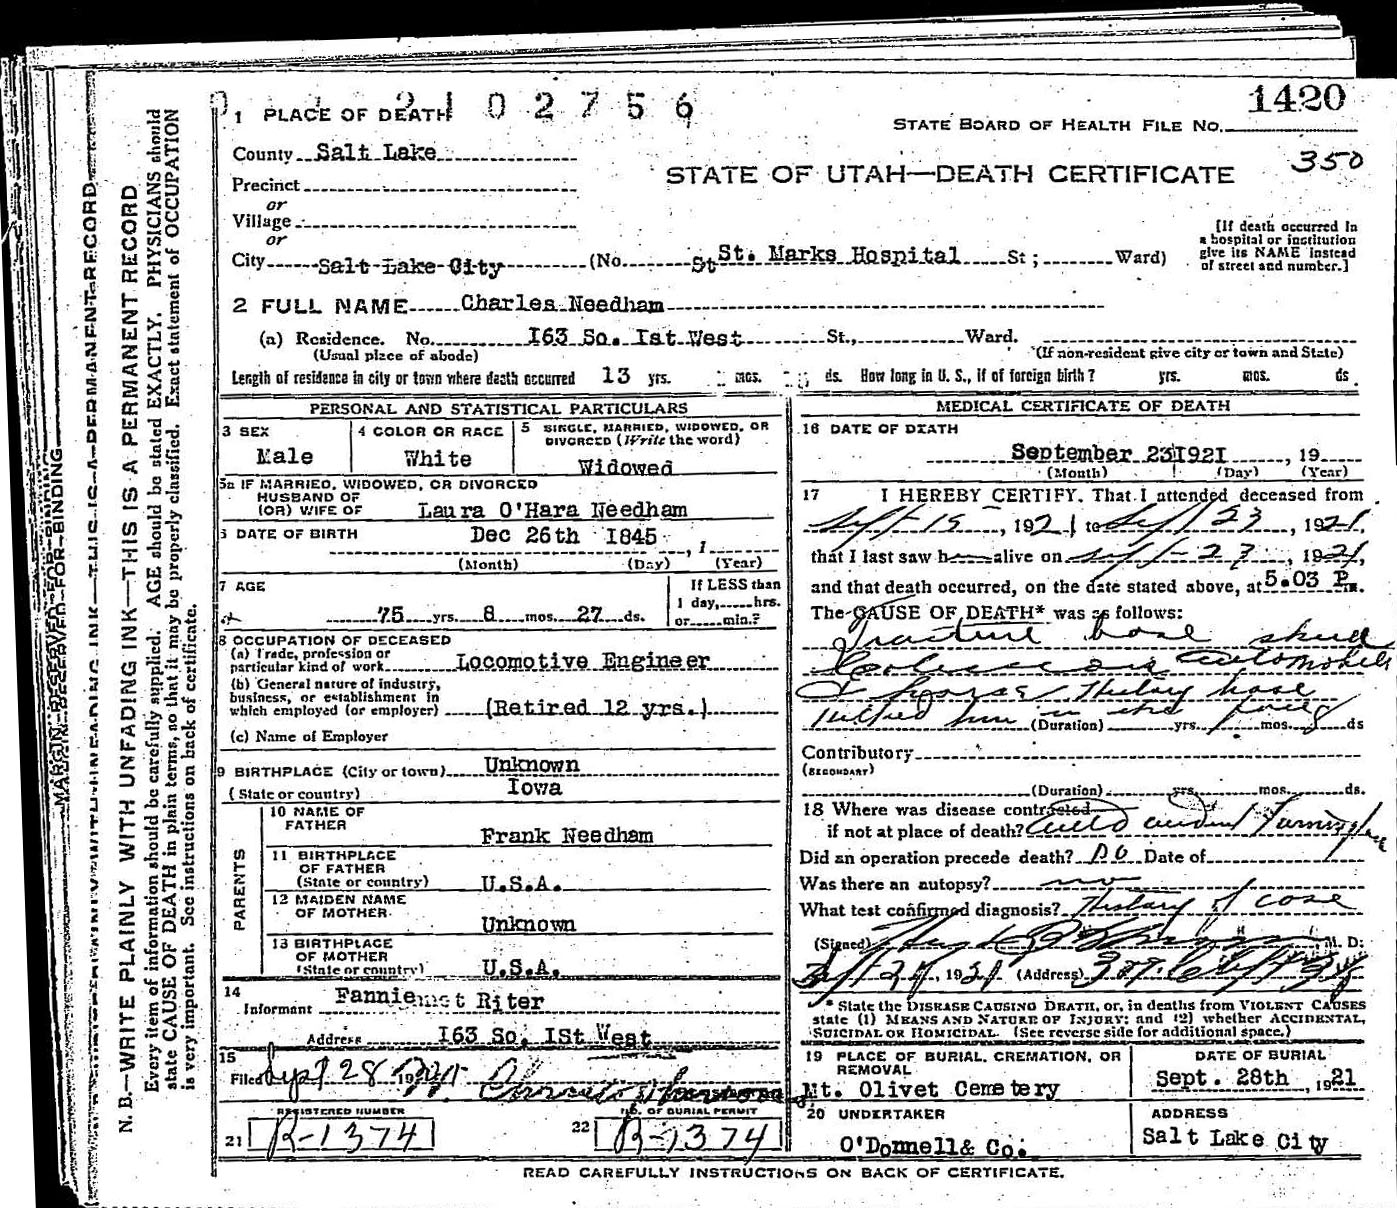 2102756
1420
1 PLACE OF DEATH
STATE BOARD OF HEALTH FILE No.
350
County Salt Lake
STATE OF UTAH—DEATH CERTIFICATE
Precinct
or
Village
or
City Salt Lake City (No. St St. Marks Hospital St; Ward)
[If death occurred in a hospital or institution give its NAME instead of street and number.]
2 FULL NAME Charles Needham
(a) Residence. No. I63 So. Ist West St., Ward.
(Usual place of abode) (If non-resident give city or town and State)
Length of residence in city or town where death occurred 13 yrs. mos. ds. How long in U. S., if of foreign birth? yrs. mos. ds
PERSONAL AND STATISTICAL PARTICULARS
3 SEX Male
4 COLOR OR RACE White
5 SINGLE, MARRIED, WIDOWED, OR DIVORCED (Write the word) Widowed
5a IF MARRIED, WIDOWED, OR DIVORCED
HUSBAND OF
(OR) WIFE OF Laura O'Hara Needham
6 DATE OF BIRTH Dec 26th 1845 , 1
(Month) (Day) (Year)
7 AGE 75 yrs. 8 mos. 27 ds.
If LESS than
1 day, hrs.
or min.?
8 OCCUPATION OF DECEASED
(a) Trade, profession or
particular kind of work Locomotive Engineer
(b) General nature of industry,
business, or establishment in
which employed (or employer) (Retired 12 yrs.)
(c) Name of Employer
9 BIRTHPLACE (City or town) Unknown
(State or country) Iowa
PARENTS
10 NAME OF FATHER Frank Needham
11 BIRTHPLACE OF FATHER (State or country) U.S.A.
12 MAIDEN NAME OF MOTHER Unknown
13 BIRTHPLACE OF MOTHER (State or country) U.S.A.
14
Informant Fannie Riter
Address I63 So. ISt West
15
Filed Sept 28
21 REGISTERED NUMBER R-1374
22 NO. OF BURIAL PERMIT R-1374
MEDICAL CERTIFICATE OF DEATH
16 DATE OF DEATH
September 23 I92I , 19
(Month) (Day) (Year)
17 I HEREBY CERTIFY, That I attended deceased from
Sept 15, 1921 to Sept 23, 1921,
that I last saw h alive on Sept 23, 1921,
and that death occurred, on the date stated above, at 5.03 P m.
The CAUSE OF DEATH* was as follows:
Fracture base skull
automobile
& horse History
him in the
(Duration) yrs. mos. 8 ds
Contributory
(SECONDARY)
(Duration) yrs. mos. ds.
18 Where was disease contracted
if not at place of death? Auto accident
Did an operation precede death? no Date of
Was there an autopsy? no
What test confirmed diagnosis? History of case
(Signed) M. D.
1921 (Address)
* State the DISEASE CAUSING DEATH, or, in deaths from VIOLENT CAUSES
state (1) MEANS AND NATURE OF INJURY; and (2) whether ACCIDENTAL,
SUICIDAL OR HOMICIDAL. (See reverse side for additional space.)
19 PLACE OF BURIAL, CREMATION, OR REMOVAL
Mt. Olivet Cemetery
DATE OF BURIAL
Sept. 28th, 1921
20 UNDERTAKER
O'Donnell & Co.
ADDRESS
Salt Lake City
READ CAREFULLY INSTRUCTIONS ON BACK OF CERTIFICATE.
MARGIN RESERVED FOR BINDING
N. B.—WRITE PLAINLY WITH UNFADING INK—THIS IS A PERMANENT RECORD
Every item of information should be carefully supplied. AGE should be stated EXACTLY. PHYSICIANS should
state CAUSE OF DEATH in plain terms, so that it may be properly classified. Exact statement of OCCUPATION
is very important. See instructions on back of certificate.